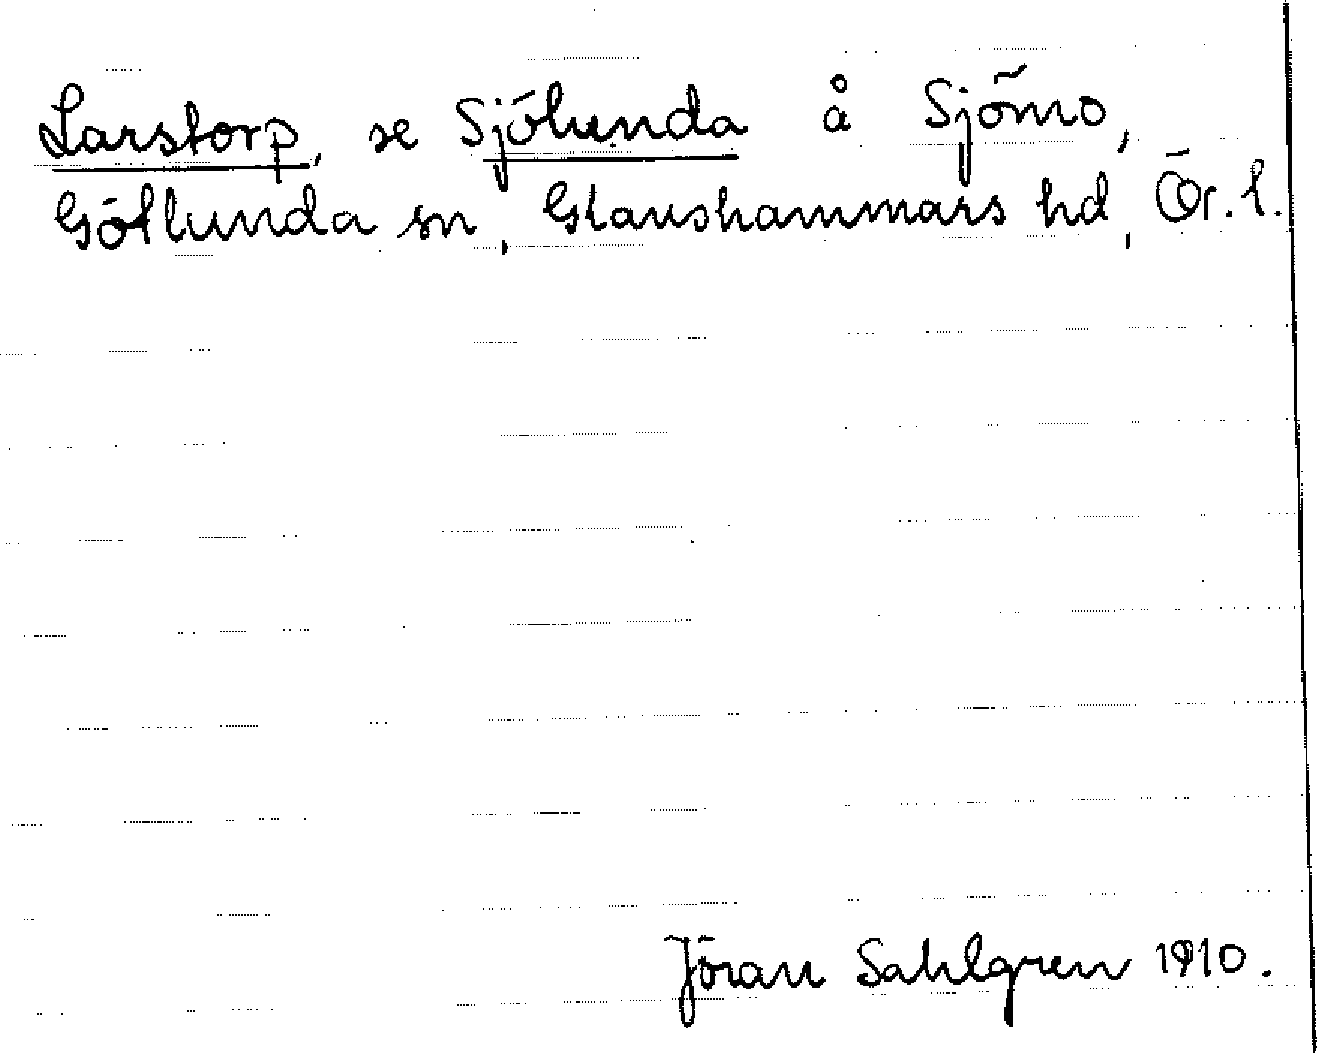 Larstorp, se Sjölunda å Sjömo,
Götlunda sn, Glanshammars hd, Ör. l.
Jöran Sahlgren 1910.